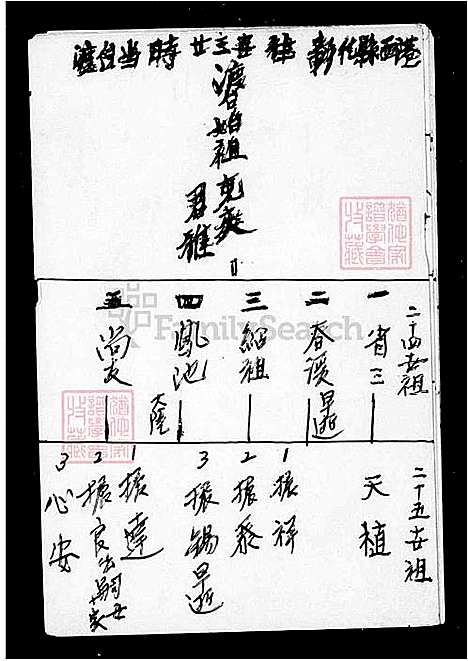 渡台当時廿三世祖 彰化縣西港
渡台始祖克爽
君雅
二十四世祖
一 省三
二 春溪早逝
三 紹祖
四 鳳池
五 尚友
大院
二十五世祖
天植
1 振祥
2 振泰
3 振錫早逝
1 振達
2 振良出嗣
3 心安
FamilySearch